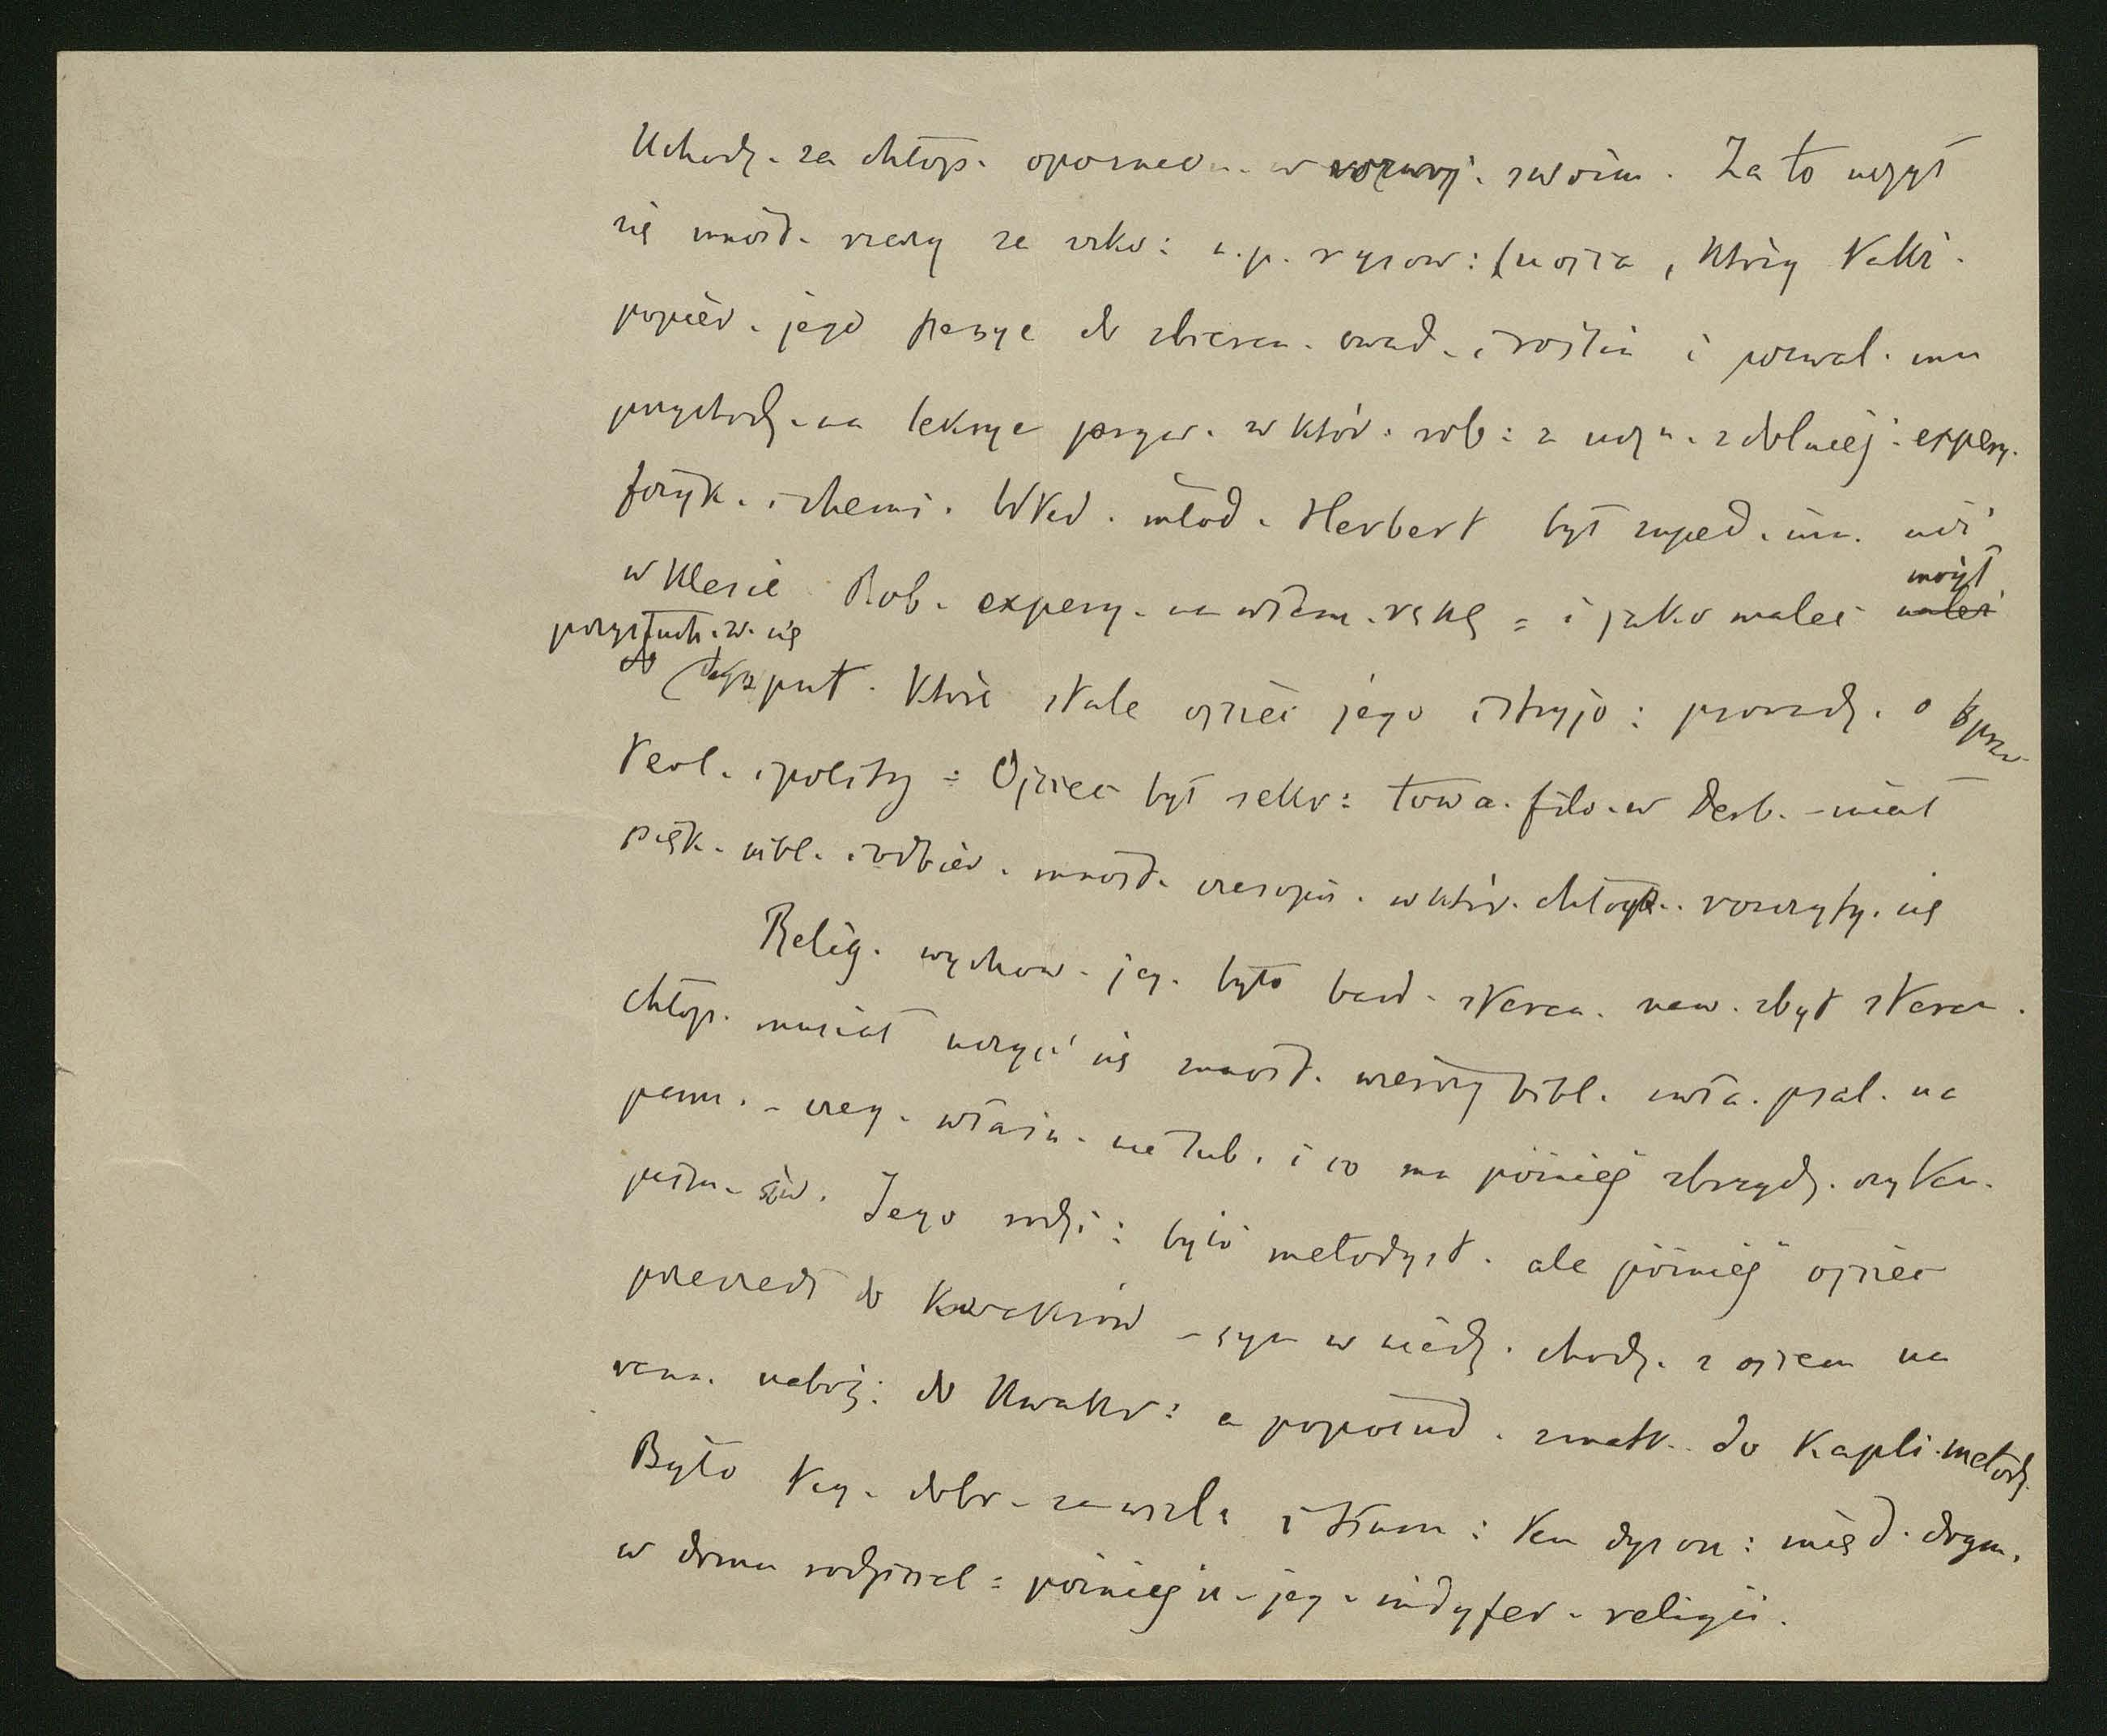 Uchodz. za chłop. w rozwoj. swoim. Za to uczył
się mnóst. rzeczy ze szko: n.p. rysow: (u ojca, który także
popier. jego pasye do zbieran. owad. i roślin i pozwal. mu
przychodz. na lekcye pryw. w któr: rob: z uczn. zdolniej: expery.
fizyk. i chemi. Wted. młod. Herbert był zupeł. inn. niż
w klasie Rob. expery. na własn. rękę = i jako malec mógł
przysłuch.w. się
do dysput. które stale ojciec jego i stryjo: prowadz. o spraw
teol. i polity = Ojciec był sekr: towa. filo. w Derb. - miał
pięk. bibl. i odbier. mnóst. czasopis. w któr. chłop. rozczyty. się
Relig. wychow. jeg. było bard. staran. naw. zbyt staran.
chłop. musiał uczyć się mnóst. wierszy bibl. i psal. na
pam. - czeg. właśn. nie lub. i co mu później zbrzydz. czytan.
pism. św. Jego rodzi: byli metodyst. ale później ojciec
przeszedł do kwakrów - syn w niedz. chodz. z ojcem na
rann. naboż: do kwakr: a popołud. z matk. do kapli. metody.
Było teg. dobr. za wiel. i tłum: ten dyson: międ. dogm.
w domu rodziciel = później u jeg. indyfer. religii.